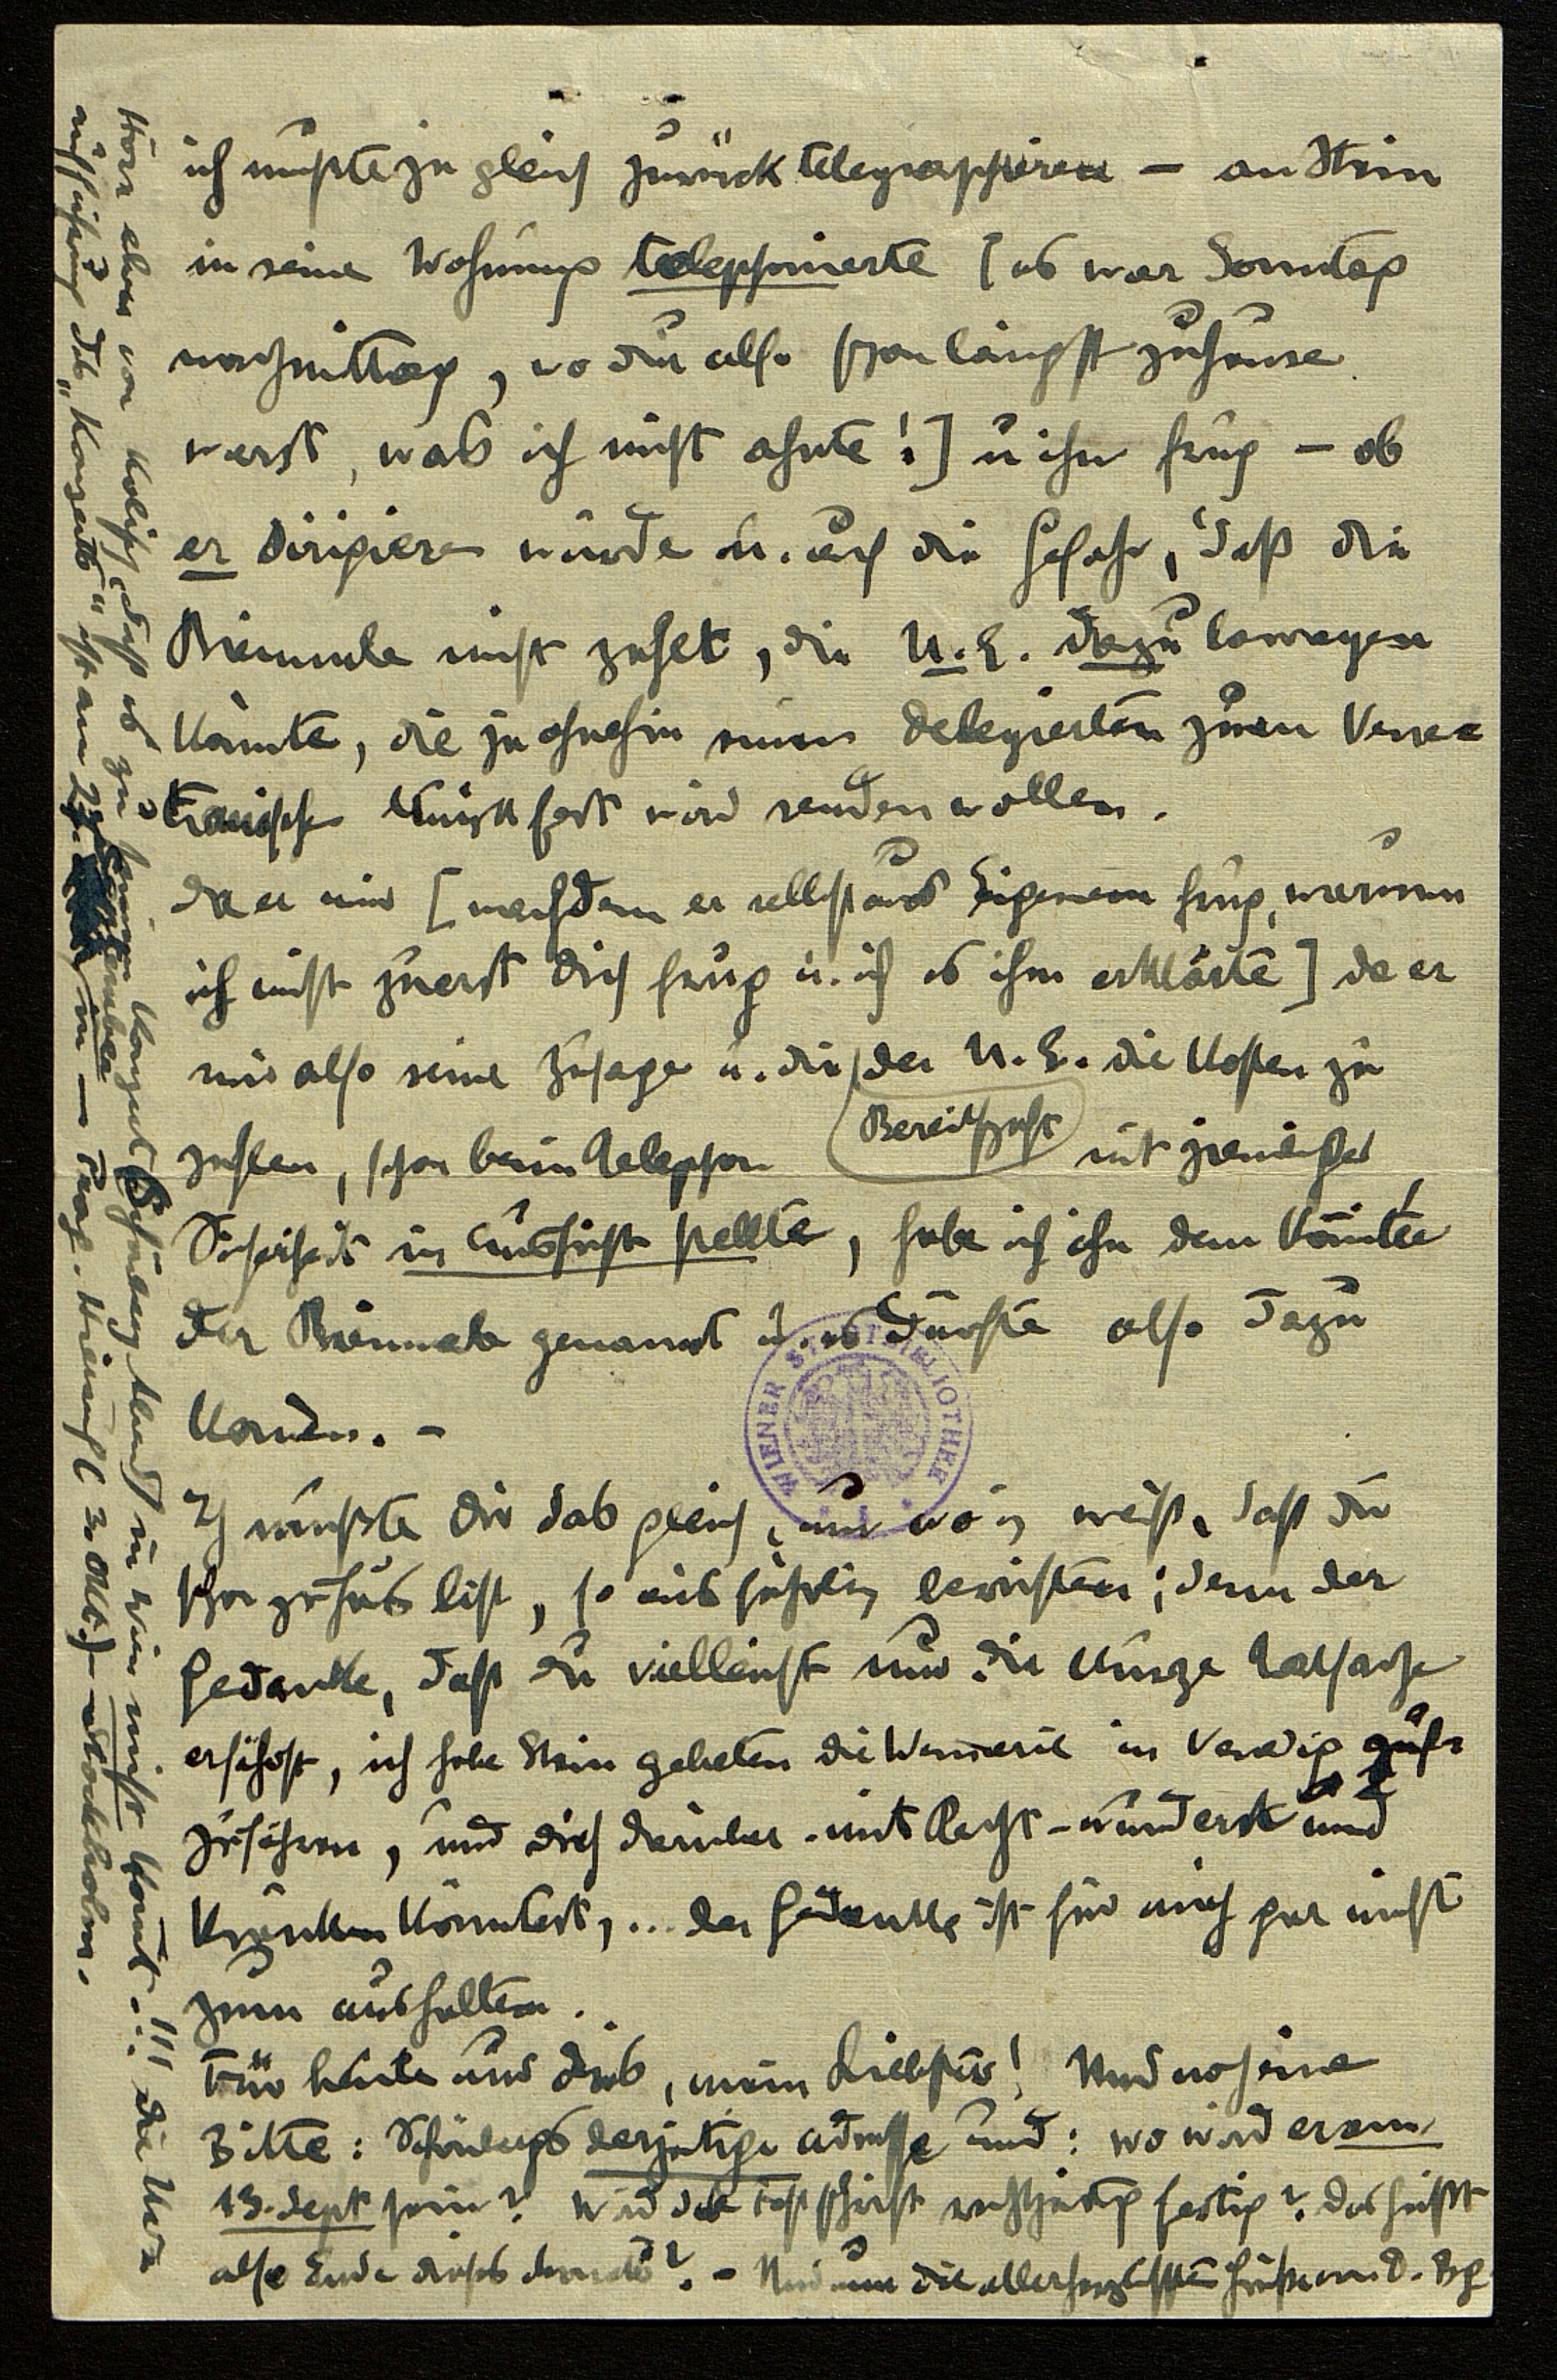 ich mußte ja gleich zurücktelegraphieren – an Stein
in seine Wohnung telephonierte [es war Sonntag
nachmittag, wo du also schon längst zuhause
warst, was ich nicht ahnte!] u ihn frug – ob
er dirigieren würde u. auf die Gefahr, daß die
Biennale nicht zahlt, die U.E. dazu bewegen
könnte, die ja ohnehin einen Delegierten zum Vene-
tianischen Musikfest wird senden wollen.
Da er mir [nachdem er selbst aus Eigenem frug, warum
ich nicht zuerst dich frug u. ich es ihm erklärte] da er
mir also seine Zusage u. die der U.E. die Kosten zu
Bereitschaft
zahlen, schon beim Telephon mit ziemlicher
Sicherheit in Aussicht stellte, habe ich ihn dem Komitee
der Biennale genannt u. es dürfte also dazu
kommen. –
Ich mußte dir das gleich, nur wo ich weiß, daß du
schon zuhaus bist, so ausführlich berichten; denn der
Gedanke, daß du vielleicht nur die kurze Tatsache
erfährst, ich habe Stein gebeten die Weinarie in Venedig aufzu
zuführen, und dich darüber – mit Recht – wunderst und
kränken könntest, ... der Gedanke ist für mich gar nicht
zum aushalten.
Für heute nur dies, mein Liebster! Und noch eine
Bitte: Schönbergs derzeitige Adresse und: wo wird er am
13. Sept sein? Wird die Festschrift rechtzeitig fertig? Das heißt
also Ende dieses Monats? – Und nun die allerherzlichsten Grüße von D. Bg
Höre eben von Kolisch, daß es zu seinem Konzert (Schönberg Abend) in Wien nicht kommt..!!! Die Ur-
aufführung des "Konzerts" ist am 29. September in – Prag. Hierauf (3. Okt.) – Stockholm.
WIENER STADTBIBLIOTHEK